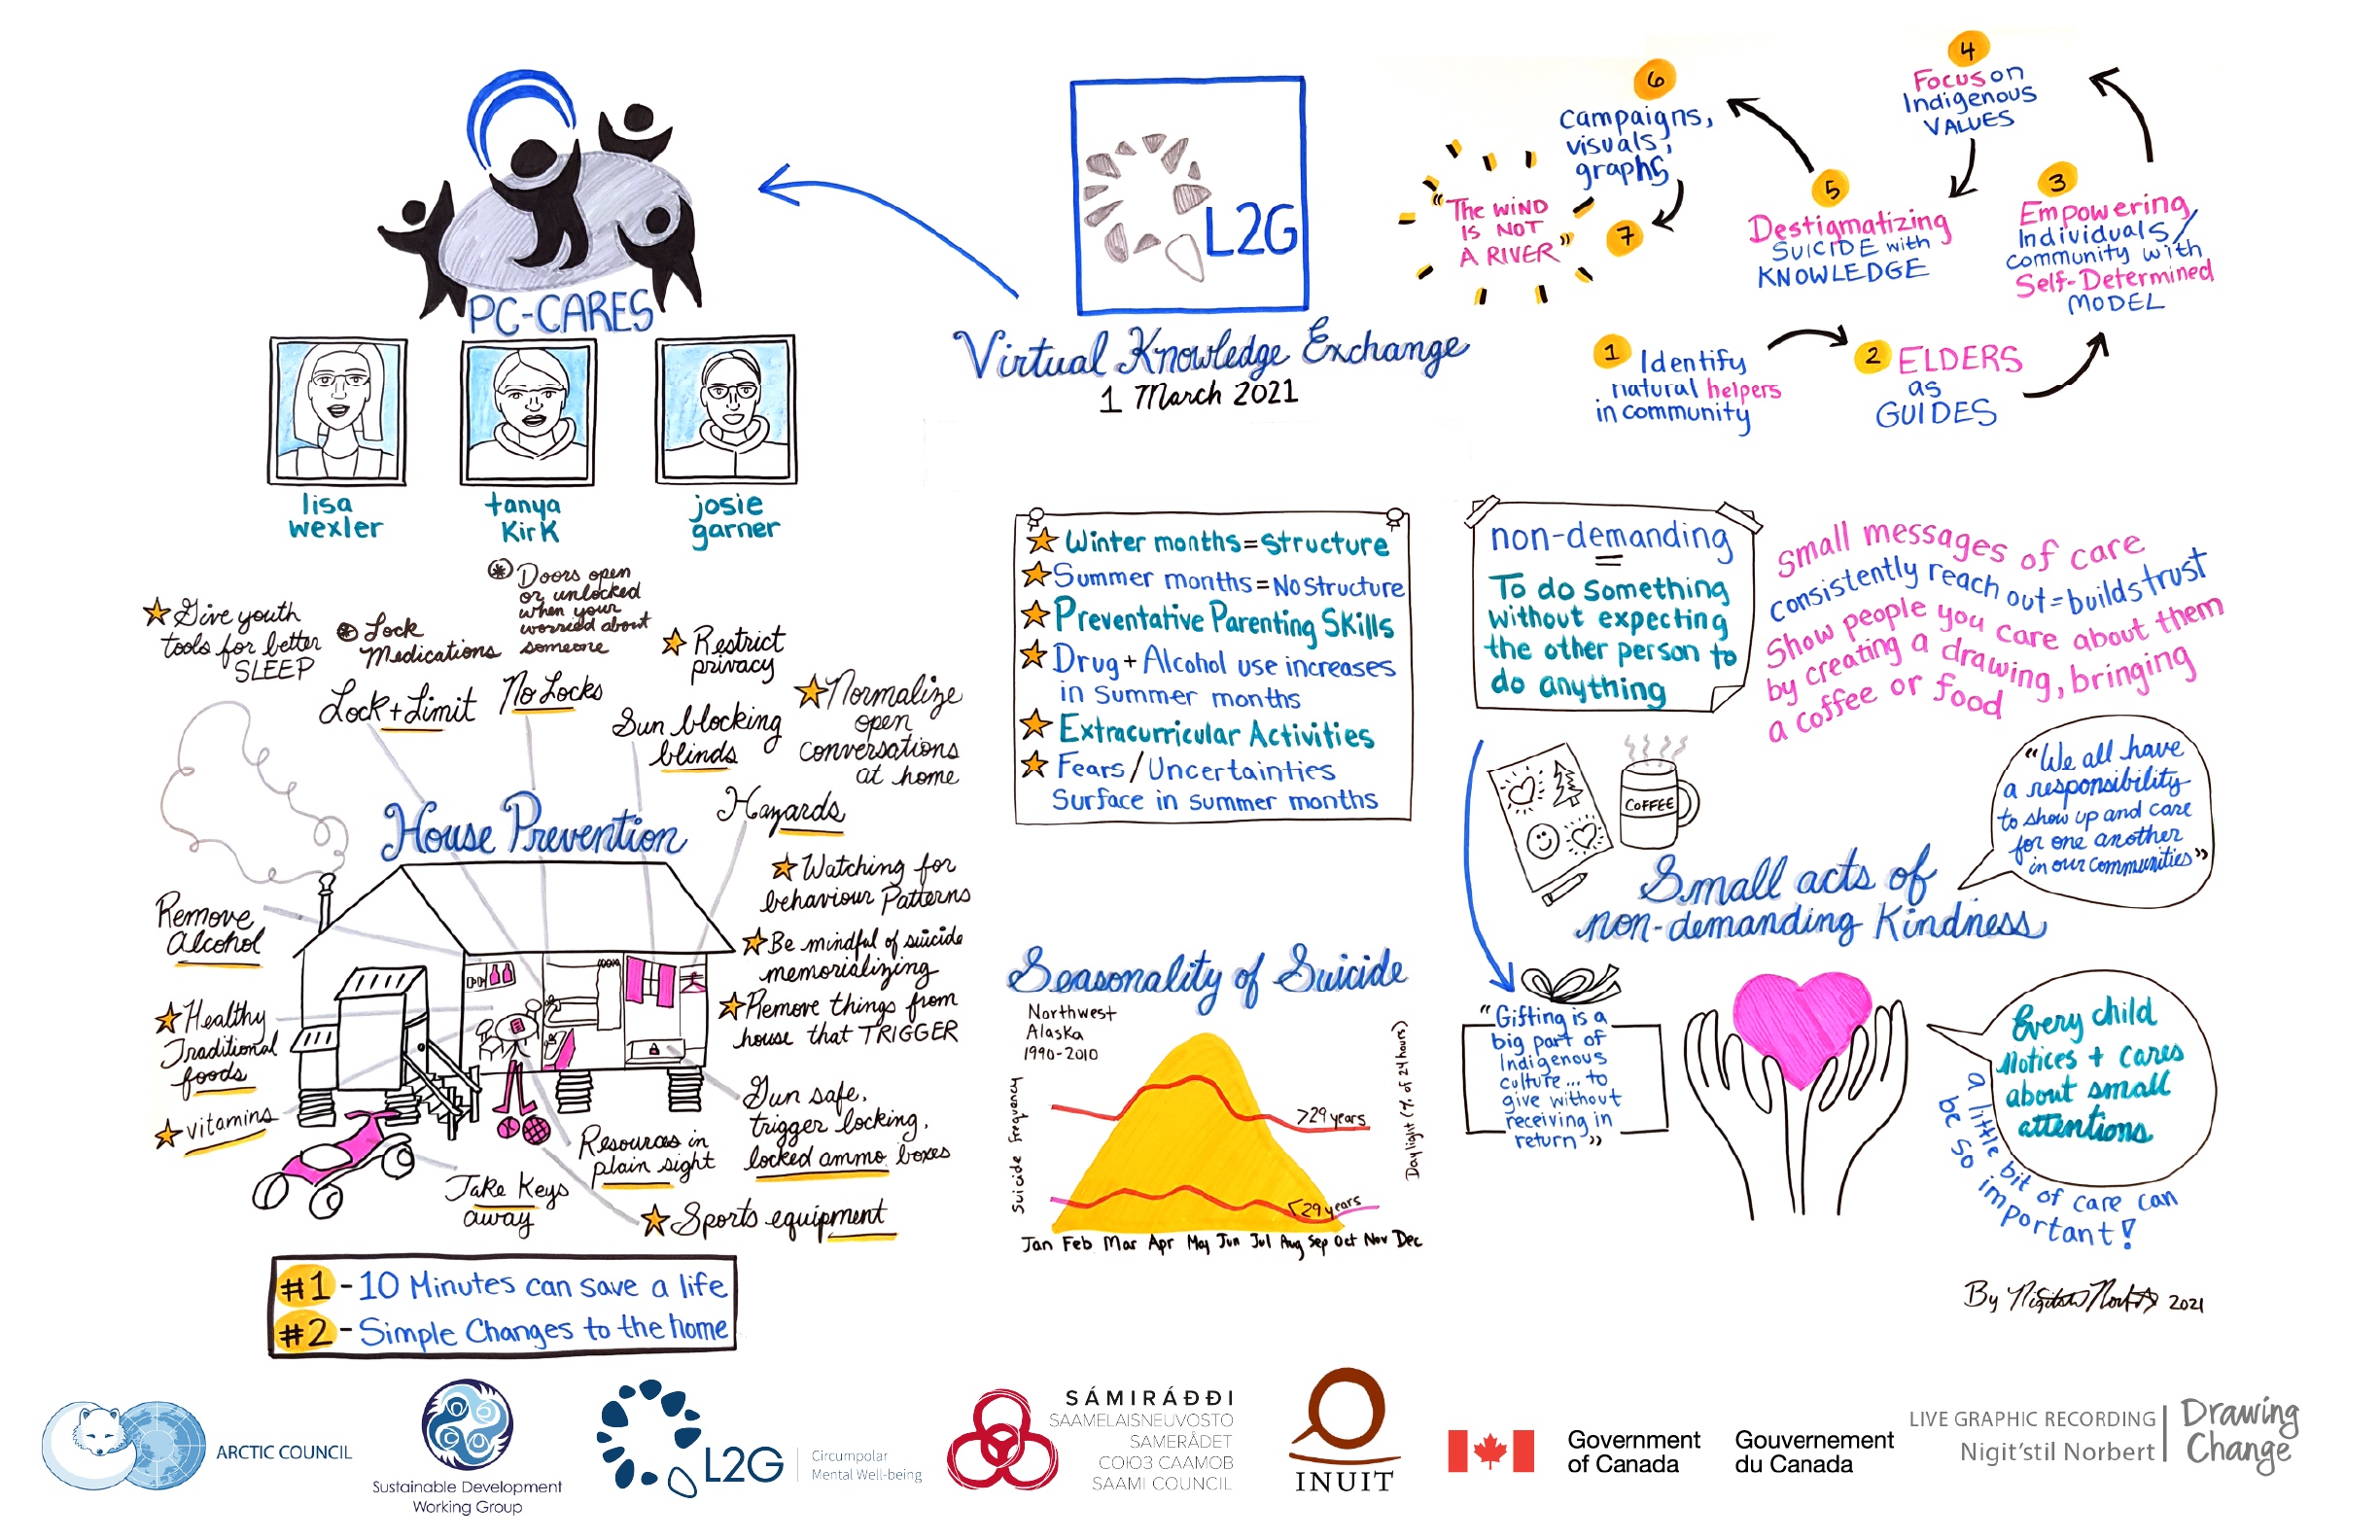 PC-CARES
lisa
wexler
tanya
Kirk
josie
garner
L2G
Virtual Knowledge Exchange
1 March 2021
1 Identify
natural helpers
in community
2 ELDERS
as
GUIDES
3
Empowering
Individuals/
community with
Self-Determined
MODEL
4
Focus on
Indigenous
VALUES
5
Destigmatizing
SUICIDE with
KNOWLEDGE
6
Campaigns,
visuals,
graphs
7
"The WIND
IS NOT
A RIVER"
Give youth
tools for better
SLEEP
Lock
Medications
Doors open
or unlocked
when your
worried about
someone
Restrict
privacy
Lock + Limit
No Locks
Sun blocking
blinds
Normalize
open
conversations
at home
Hazards
House Prevention
Watching for
behaviour Patterns
Be mindful of suicide
memorializing
Remove things from
house that TRIGGER
Remove
Alcohol
Healthy
Traditional
foods
vitamins
Gun safe,
trigger locking,
locked ammo boxes
Resources in
plain sight
Take Keys
away
Sports equipment
#1 - 10 Minutes can save a life
#2 - Simple Changes to the home
Winter months = Structure
Summer months = No Structure
Preventative Parenting Skills
Drug + Alcohol use increases
in summer months
Extracurricular Activities
Fears / Uncertainties
Surface in summer months
Seasonality of Suicide
Northwest
Alaska
1990-2010
Suicide Frequency
Daylight (% of 24 hours)
>29 years
<29 years
Jan Feb Mar Apr May Jun Jul Aug Sep Oct Nov Dec
non-demanding
=
To do something
without expecting
the other person to
do anything
Small messages of care
consistently reach out = builds trust
Show people you care about them
by creating a drawing, bringing
a coffee or food
COFFEE
"We all have
a responsibility
to show up and care
for one another
in our communities"
Small acts of
non-demanding Kindness
"Gifting is a
big part of
Indigenous
culture... to
give without
receiving in
return"
Every child
Notices + cares
about small
attentions
a little bit of care can
be so important!
By Nigit'stil Norbert 2021
ARCTIC COUNCIL
Sustainable Development
Working Group
L2G
Circumpolar
Mental Well-being
SÁMIRÁĐĐI
SAAMELAISNEUVOSTO
SAMERÅDET
СОЮЗ СААМОВ
SAAMI COUNCIL
INUIT
Government
of Canada
Gouvernement
du Canada
LIVE GRAPHIC RECORDING
Nigit'stil Norbert
Drawing
Change